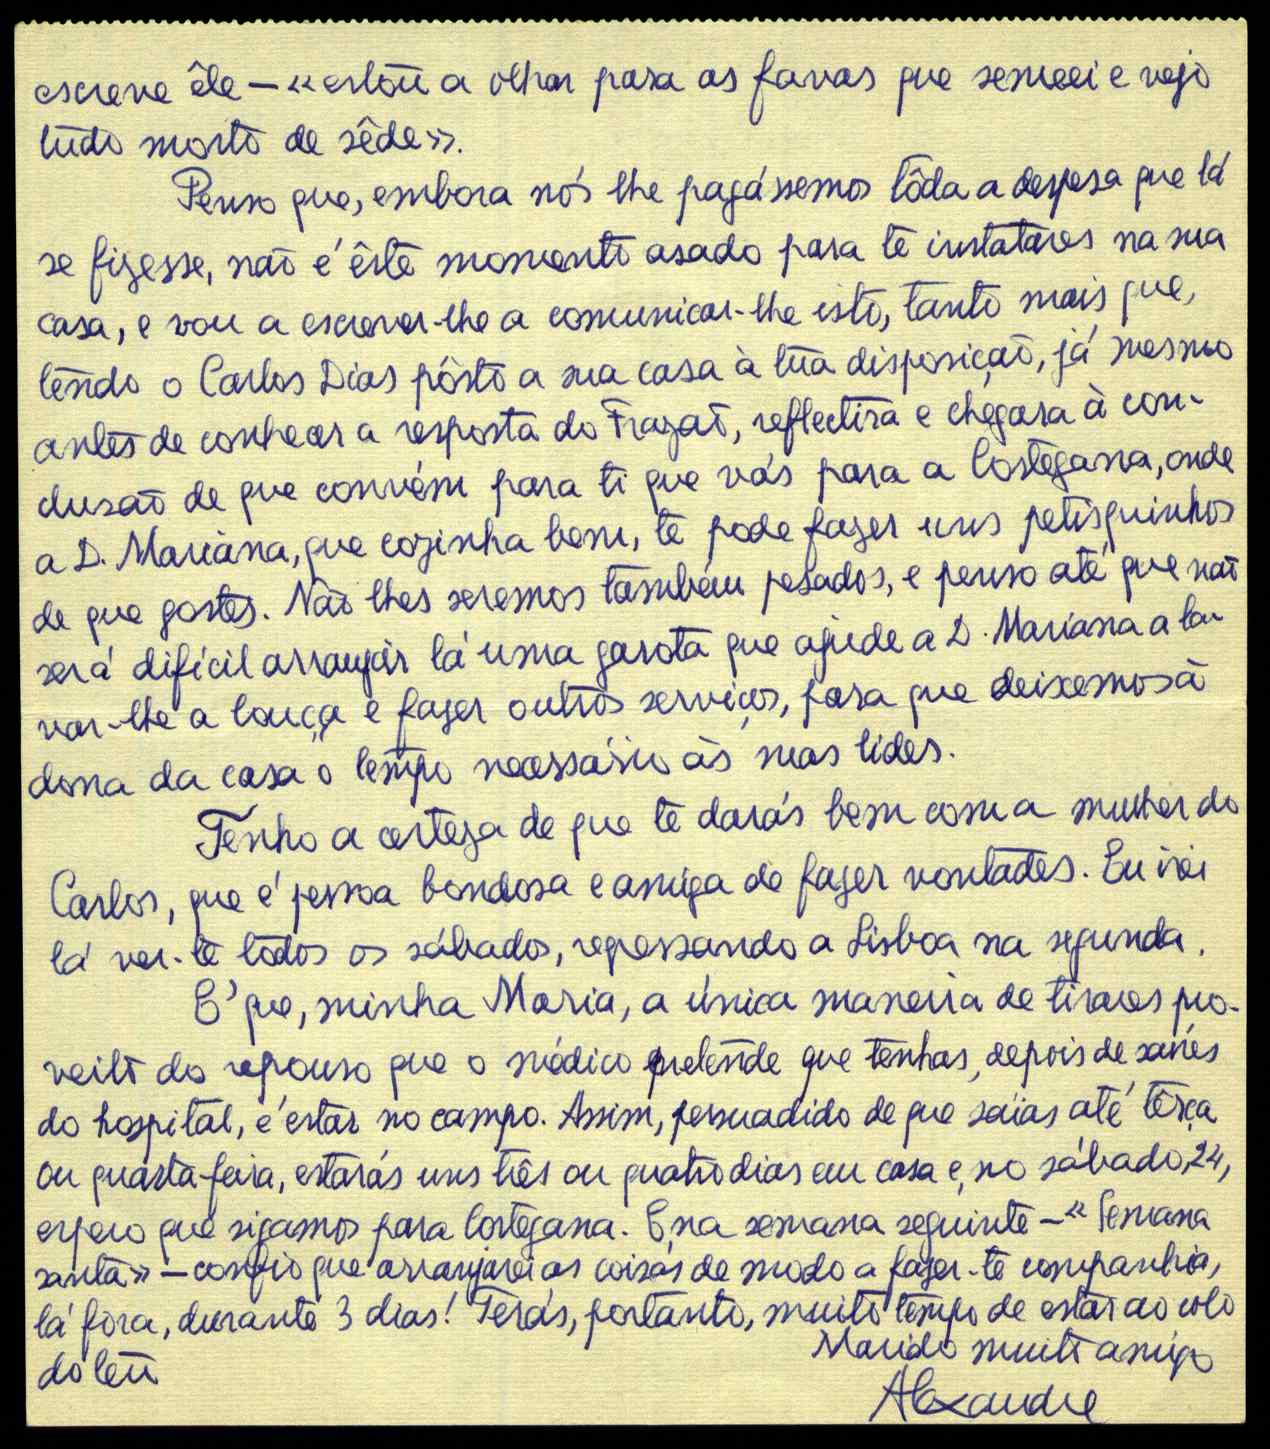 escreve êle — «estou a olhar para as favas que semeei e vejo
tudo morto de sêde».
Penso que, embora nós lhe pagássemos tôda a despesa que lá
se fizesse, não é êste momento asado para te instalares na sua
casa, e vou a escrever-lhe a comunicar-lhe isto, tanto mais que,
tendo o Carlos Dias pôsto a sua casa à tua disposição, já mesmo
antes de conhecer a resposta do Frazão, reflectira e chegara à con-
clusão de que convém para ti que vás para a Cortegana, onde
a D. Mariana, que cozinha bem, te pode fazer uns petisquinhos
de que gostes. Não lhes seremos também pesados, e penso até que não
será difícil arranjar lá uma garota que ajude a D. Mariana a la-
var-lhe a louça e fazer outros serviços, para que deixemos à
dona da casa o tempo necessário às suas lides.
Tenho a certeza de que te darás bem com a mulher do
Carlos, que é pessoa bondosa e amiga de fazer vontades. Eu irei
lá ver-te todos os sábados, regressando a Lisboa na segunda.
É que, minha Maria, a única maneira de tirares pro-
veito do repouso que o médico pretende que tenhas, depois de saíres
do hospital, é estar no campo. Assim, persuadido de que saias até têrça
ou quarta-feira, estarás uns três ou quatro dias em casa e, no sábado, 24,
espero que sigamos para Cortegana. E, na semana seguinte — «Semana
santa» — confio que arranjarei as coisas de modo a fazer-te companhia,
lá fora, durante 3 dias! Terás, portanto, muito tempo de estar ao colo
do teu
Marido muito amigo
Alexandre